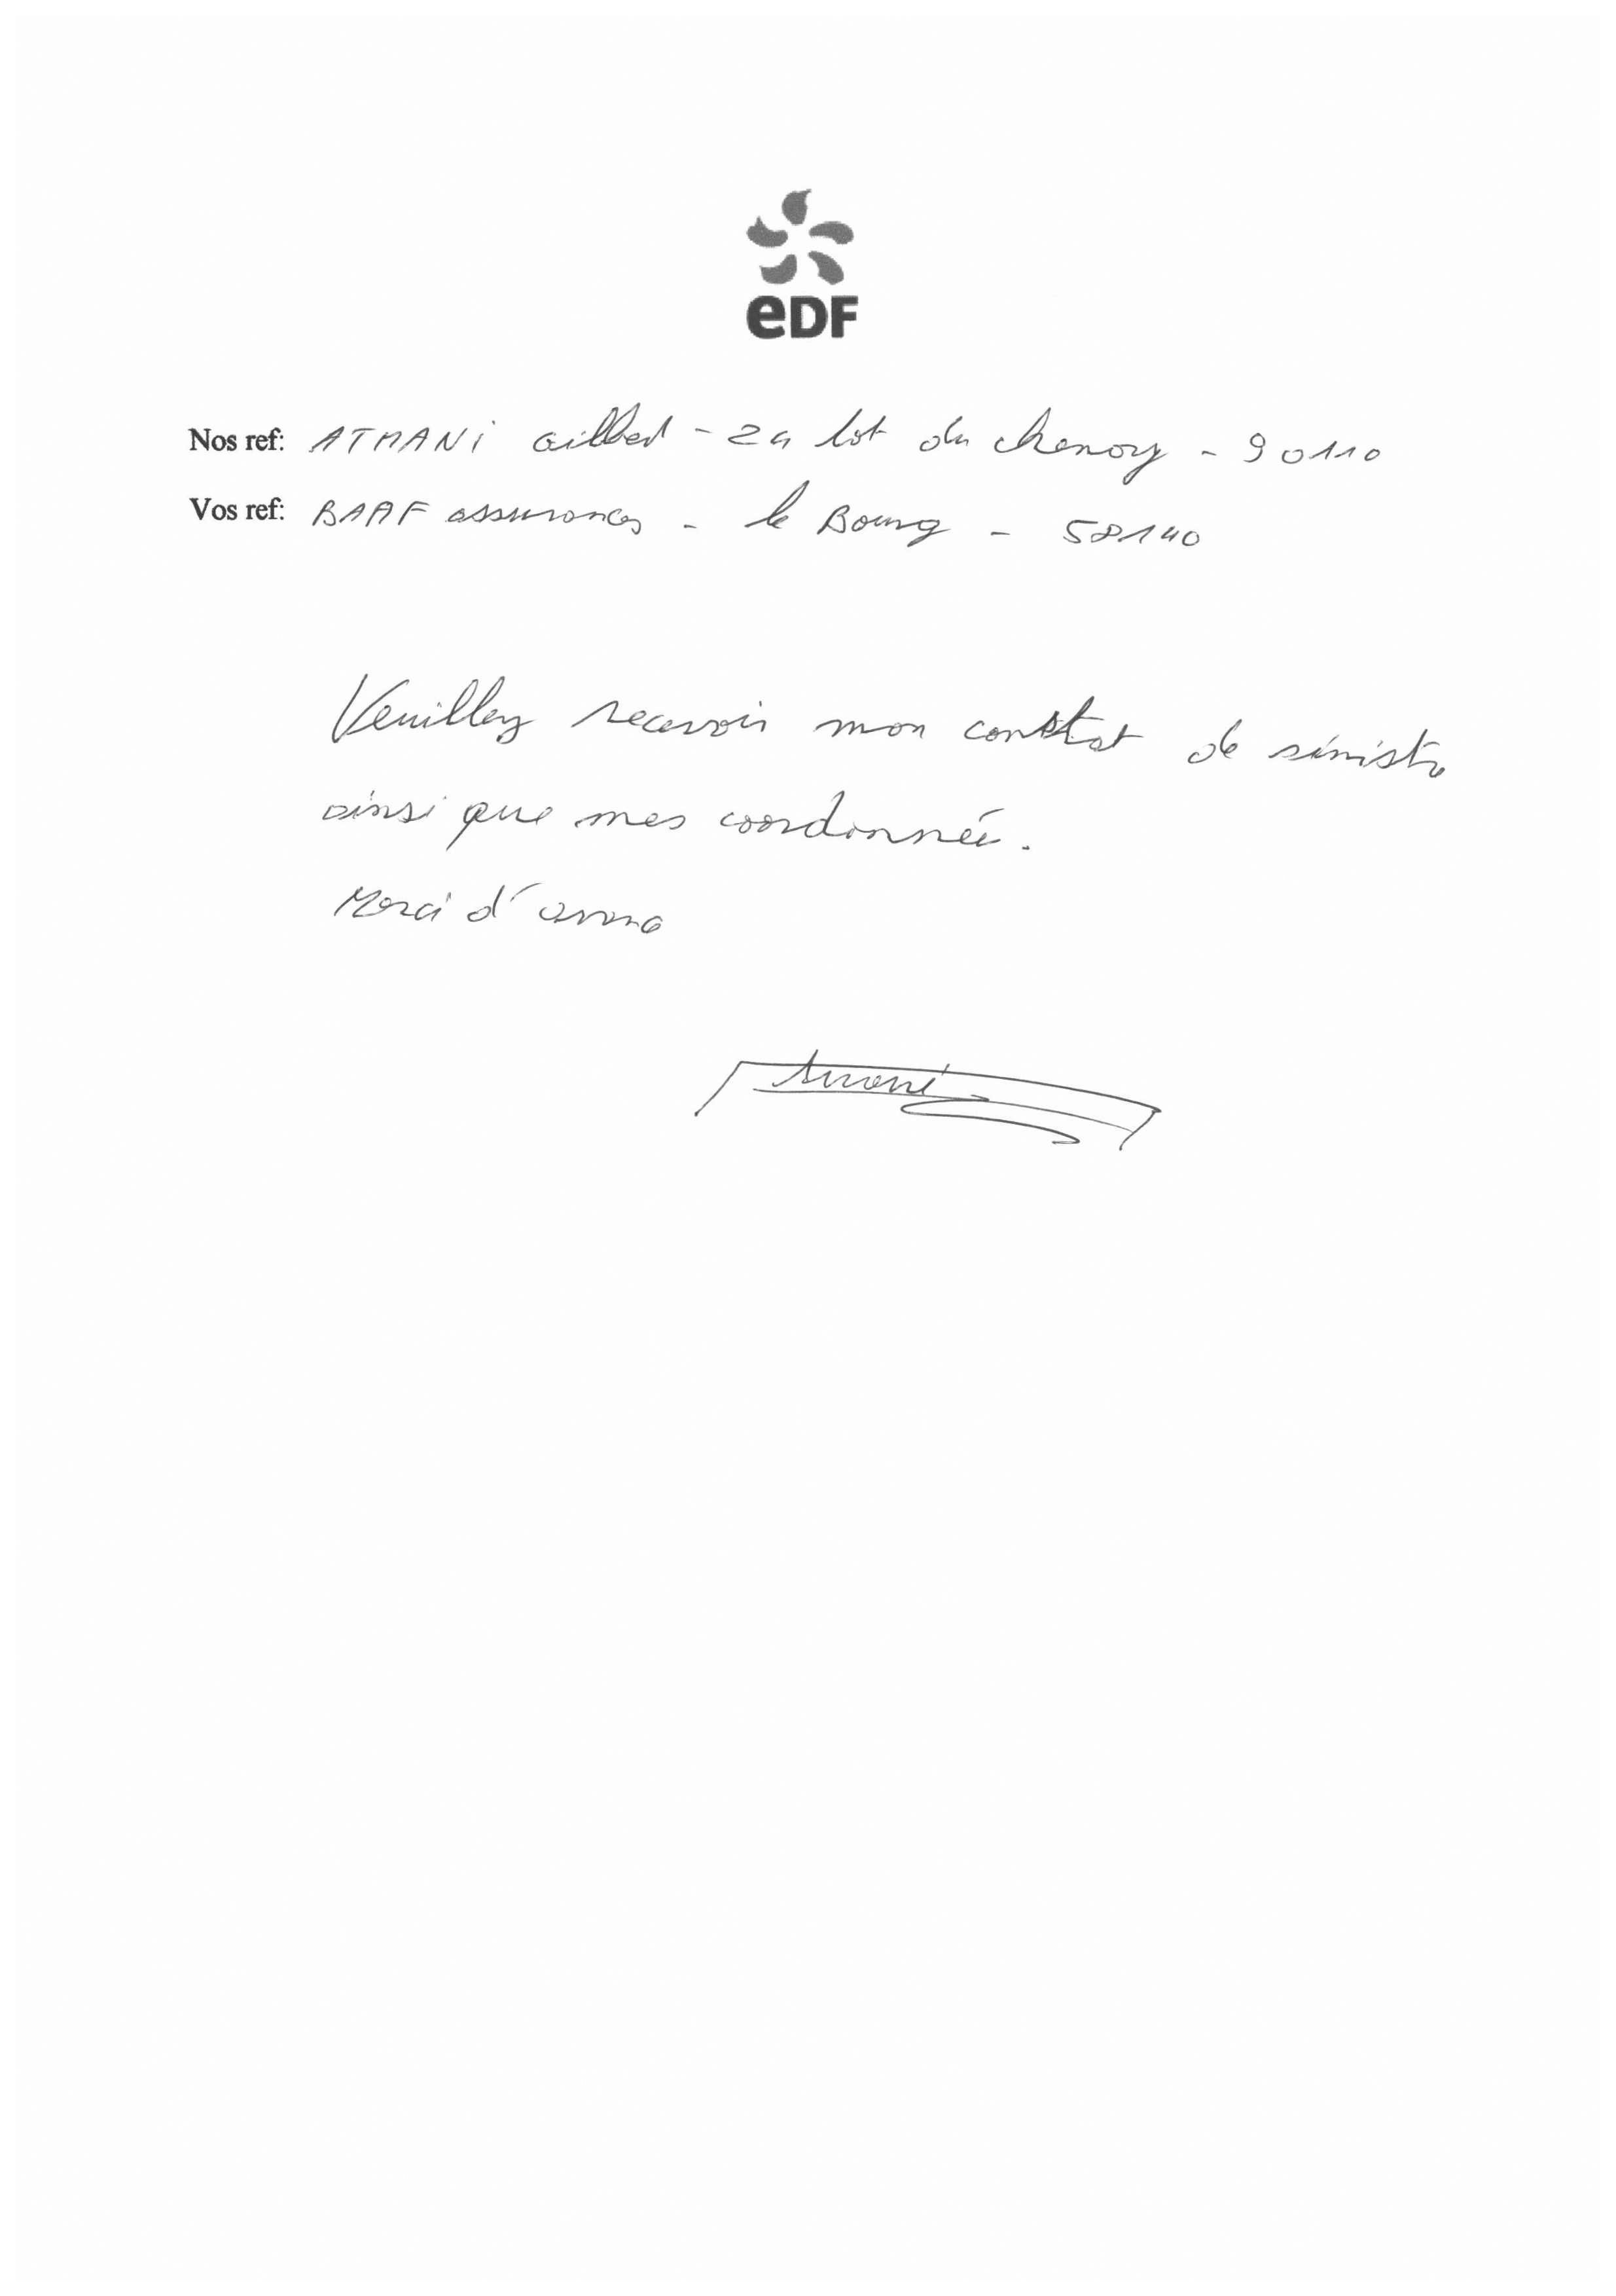 eDF
Nos ref: ATMANi Gilbert - 24 lot du chenoy - 90110
Vos ref: BAAF assurances - le Bourg - 58140
Veuillez recevoir mon constat de sinistre
ainsi que mes coordonnée.
Merci d'avance